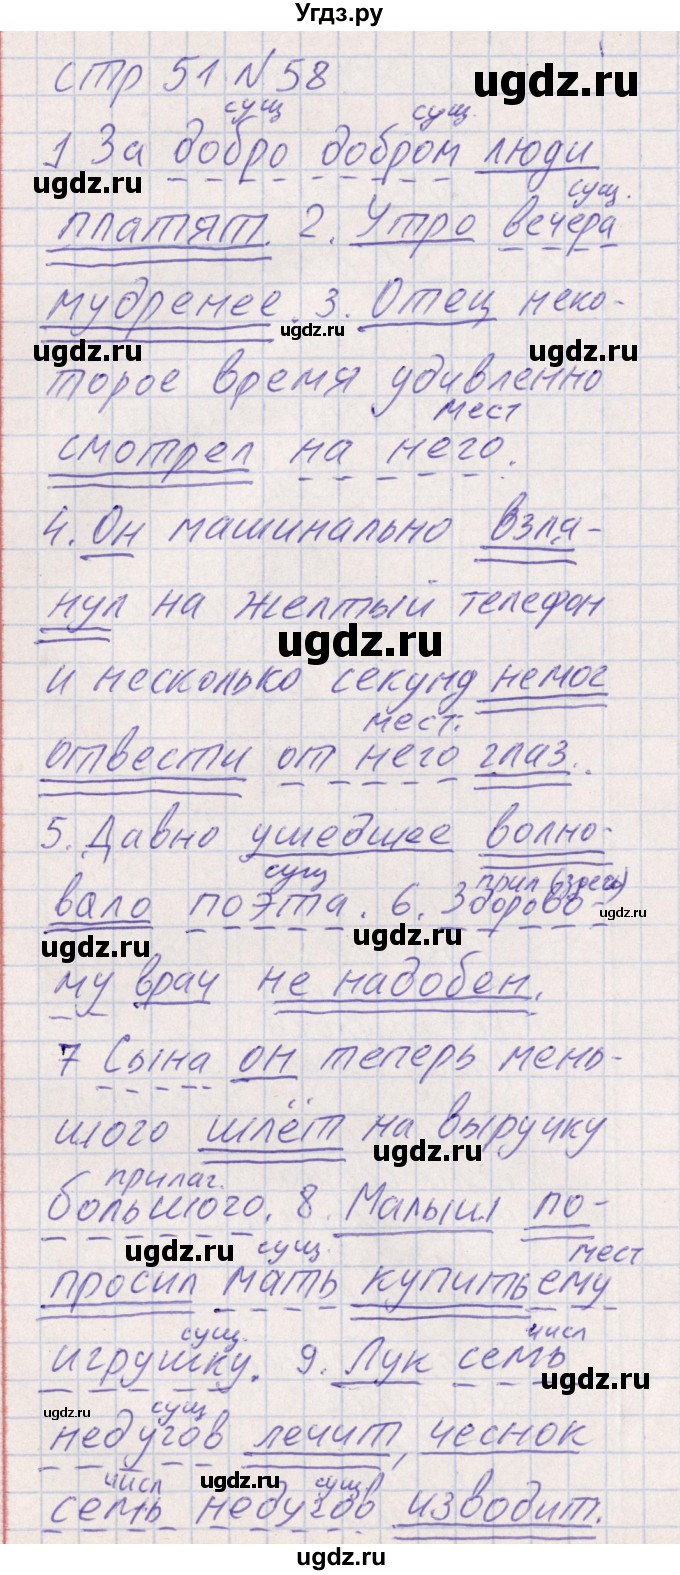 Угдз.ру
стр 51 N 58
ugdz.ru
сущ сущ.
1 За добро добром люди
ugdz.ru ugdz.ru
сущ.
платят. 2. Утро вечера
мудренее. 3. Отец неко-
ugdz.ru ugdz.ru ugdz.ru
торое время удивленно
мест
смотрел на него.
4. Он машинально взгля-
нул на желтый телефон
ugdz.ru
и несколько секунд немог
мест.
отвести от него глаз.
5. Давно ушедшее волно-
сущ прил (здесь)
вало поэта. 6. Здорово-
ugdz.ru ugdz.ru ugdz.ru
му врач не надобен.
7 Сына он теперь мень-
шого шлёт на выручку
ugdz.ru
прилаг.
большого. 8. Малыш по-
ugdz.ru
сущ. мест
просил мать купить ему
сущ. числ
игрушку. 9. Лук семь
ugdz.ru ugdz.ru
сущ
недугов лечит, чеснок
числ ugdz.ru сущ
семь недугов изводит.
ugdz.ru ugdz.ru